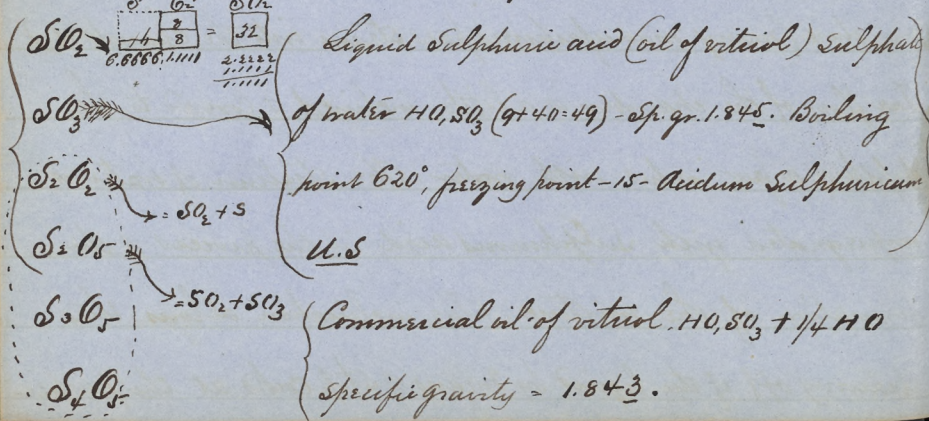 S O2 SO2
SO2 4 8 8 = 32
6.6666 1.1111 2.2222
1.1111
1.1111
SO3
S2O2
= SO2 + S
S2O5
= SO2 + SO3
S3O5
S4O5
Liquid Sulphuric acid (oil of vitriol) Sulphate
of water HO,SO3 (9+40=49) - Sp. gr. 1.845. Boiling
point 620°, freezing point -15- Acidum Sulphuricum
U.S
Commercial oil of vitriol. HO,SO3 + 1/4 HO
specific gravity = 1.843.